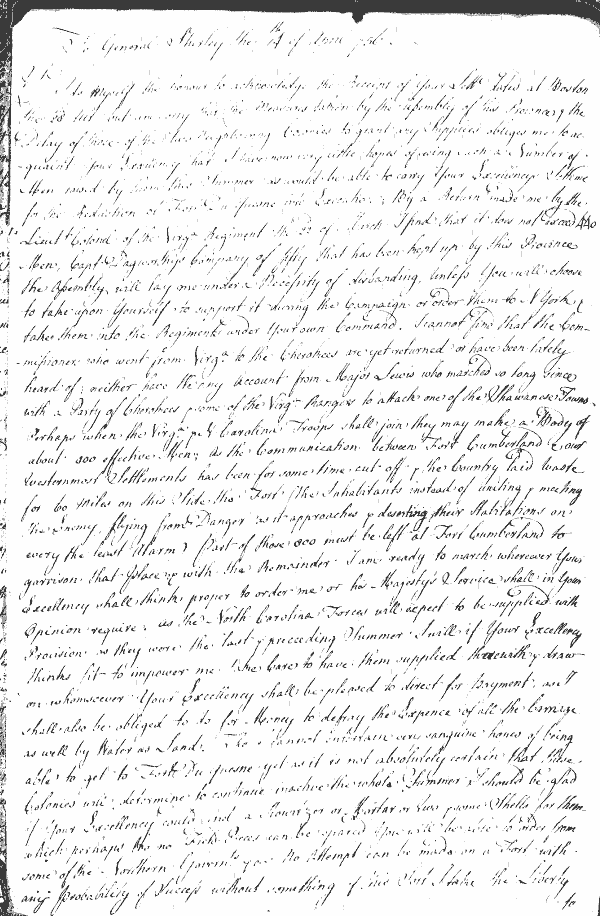 To General Shirley the 14th of April 756.
Sr.
I do myself the honour to acknowledge the Receipt of Your Letr. dated at Boston
the 28 but am sorry that the Measures taken by the Assembly of this Province & the
Delay of those of the two Neighbouring Colonies to grant any Supplies obliges me to ac-
quaint Your Excellency that I have now very little hopes of seeing such a Number of
Men raised by them this Summer as would be able to carry Your Excellency's Scheme
for the Reduction of Fort Du quesne into Execution; By a Return made me by the
Lieutt. Colonel of the Virga. Regiment the of March I find that it does not exceed 440
Men, Capt. Dagworthy's Company of fifty that has been kept up by this Province
the Assembly will lay me under a Necessity of disbanding, unless You will choose
to take upon Yourself to support it during the Campaign or order them to N York &
take them into the Regiments under Your own Command. I cannot find that the Com-
missioners who went from Virga. to the Cherokees are yet returned or have been lately
heard of; neither have We any Account from Major Lewis who marched so long since
with a Party of Cherokees & some of the Virga. Rangers to attack one of the Shawanese Towns.
Perhaps when the Virga. & N Carolina Troops shall join they may make a Body of
about 800 effective Men; as the Communication between Fort Cumberland & our
Westernmost Settlements has been for some time cut off & the Country laid waste
for 60 Miles on this Side the Fort (the Inhabitants instead of uniting & meeting
the Enemy, flying from Danger as it approaches & deserting their Habitations on
every the least Alarm) Part of those 800 must be left at Fort Cumberland to
garrison that Place, & with the Remainder I am ready to march wherever Your
Excellency shall think proper to order me or his Majesty's Service shall in Your
Opinion require; as the North Carolina Forces will expect to be supplied with
Provision as they were the last & preceeding Summer I will if Your Excellency
thinks fit to impower me take Care to have them supplied therewith & draw
on whomsoever Your Excellency shall be pleased to direct for Payment: as I
shall also be obliged to do for Money to defray the Expence of all the Carriage
as well by Water as Land: Tho I cannot entertain very sanguine hopes of being
able to get to Fort Du quesne yet as it is not absolutely certain that these
Colonies will determine to continue inactive the whole Summer I should be glad
if Your Excellency could a Howitzer or Mortar or two & some Shells for them
which perhaps tho no Field Pieces can be spared You will be able to order from
some of the Northern Governts. for no Attempt can be made on a Fort with
any Probability of Success without something of this Sort I take the Liberty
to